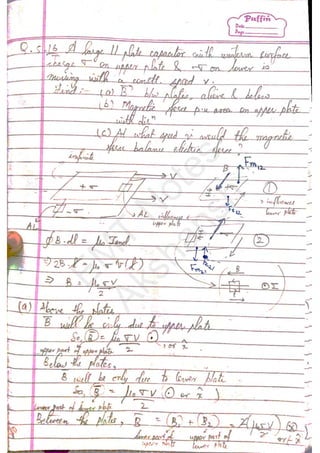 Puffin
Date
Page
Q. 5.16 A large || plate capacitor with uniform surface
charge σ on upper plate & -σ on lower is
moving with a const. speed v.
Find :- (a) B b/w plates, above & below
(b) Magnetic force per area on upper plate
with dir^n
(c) At what speed v would the magnetic
force balance electric force?
infinite
→ V
+σ
→ V
-σ
ΔL
influence
upper plate
B
Fm12
+σ
①
influence
lower plate
②
∮B·dl = μ₀ Iencl
⇒ 2B l = μ₀ σ v (l)
⇒ B = μ₀ σ v
2
⊙I
(a) Above the plates
B will be only due to upper plate
So, B = μ₀ σ V ⊙, or x̂
2
upper part of upper plate
Below the plates,
B will be only due to lower plate
So, B = μ₀ σ v (⊙ or x̂)
2
lower part of lower plate
Between the plates, B = (B₁ + B₂) = 2(μ₀σV) ⊗
2 or + x̂
lower part of upper plate
upper part of lower plate